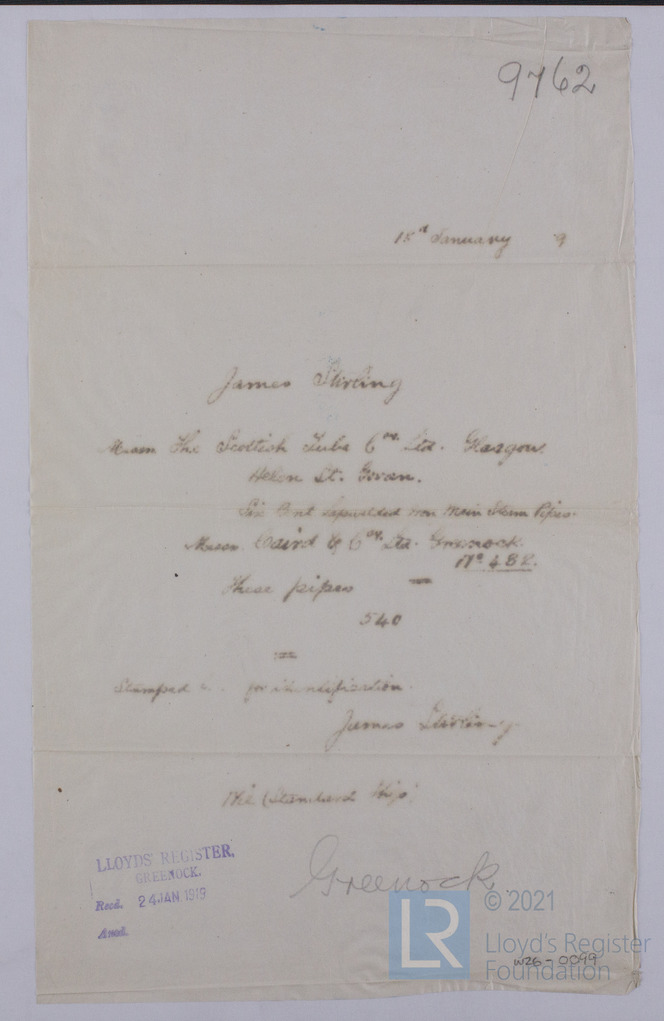 9762
18th January 9
James Stirling
Messrs The Scottish Tube Coy. Ltd. Glasgow.
Helen St. Govan.
Six Bent Lapwelded iron Main Steam Pipes.
Messrs Caird & Coy. Ltd. Greenock.
No. 382.
These pipes
540
Stamped for identification.
James Stirling
LLOYDS' REGISTER,
GREENOCK.
Recd. 24 JAN. 1919
Ansd.
Greenock
LR
© 2021
Lloyd's Register
Foundation
W26-0099